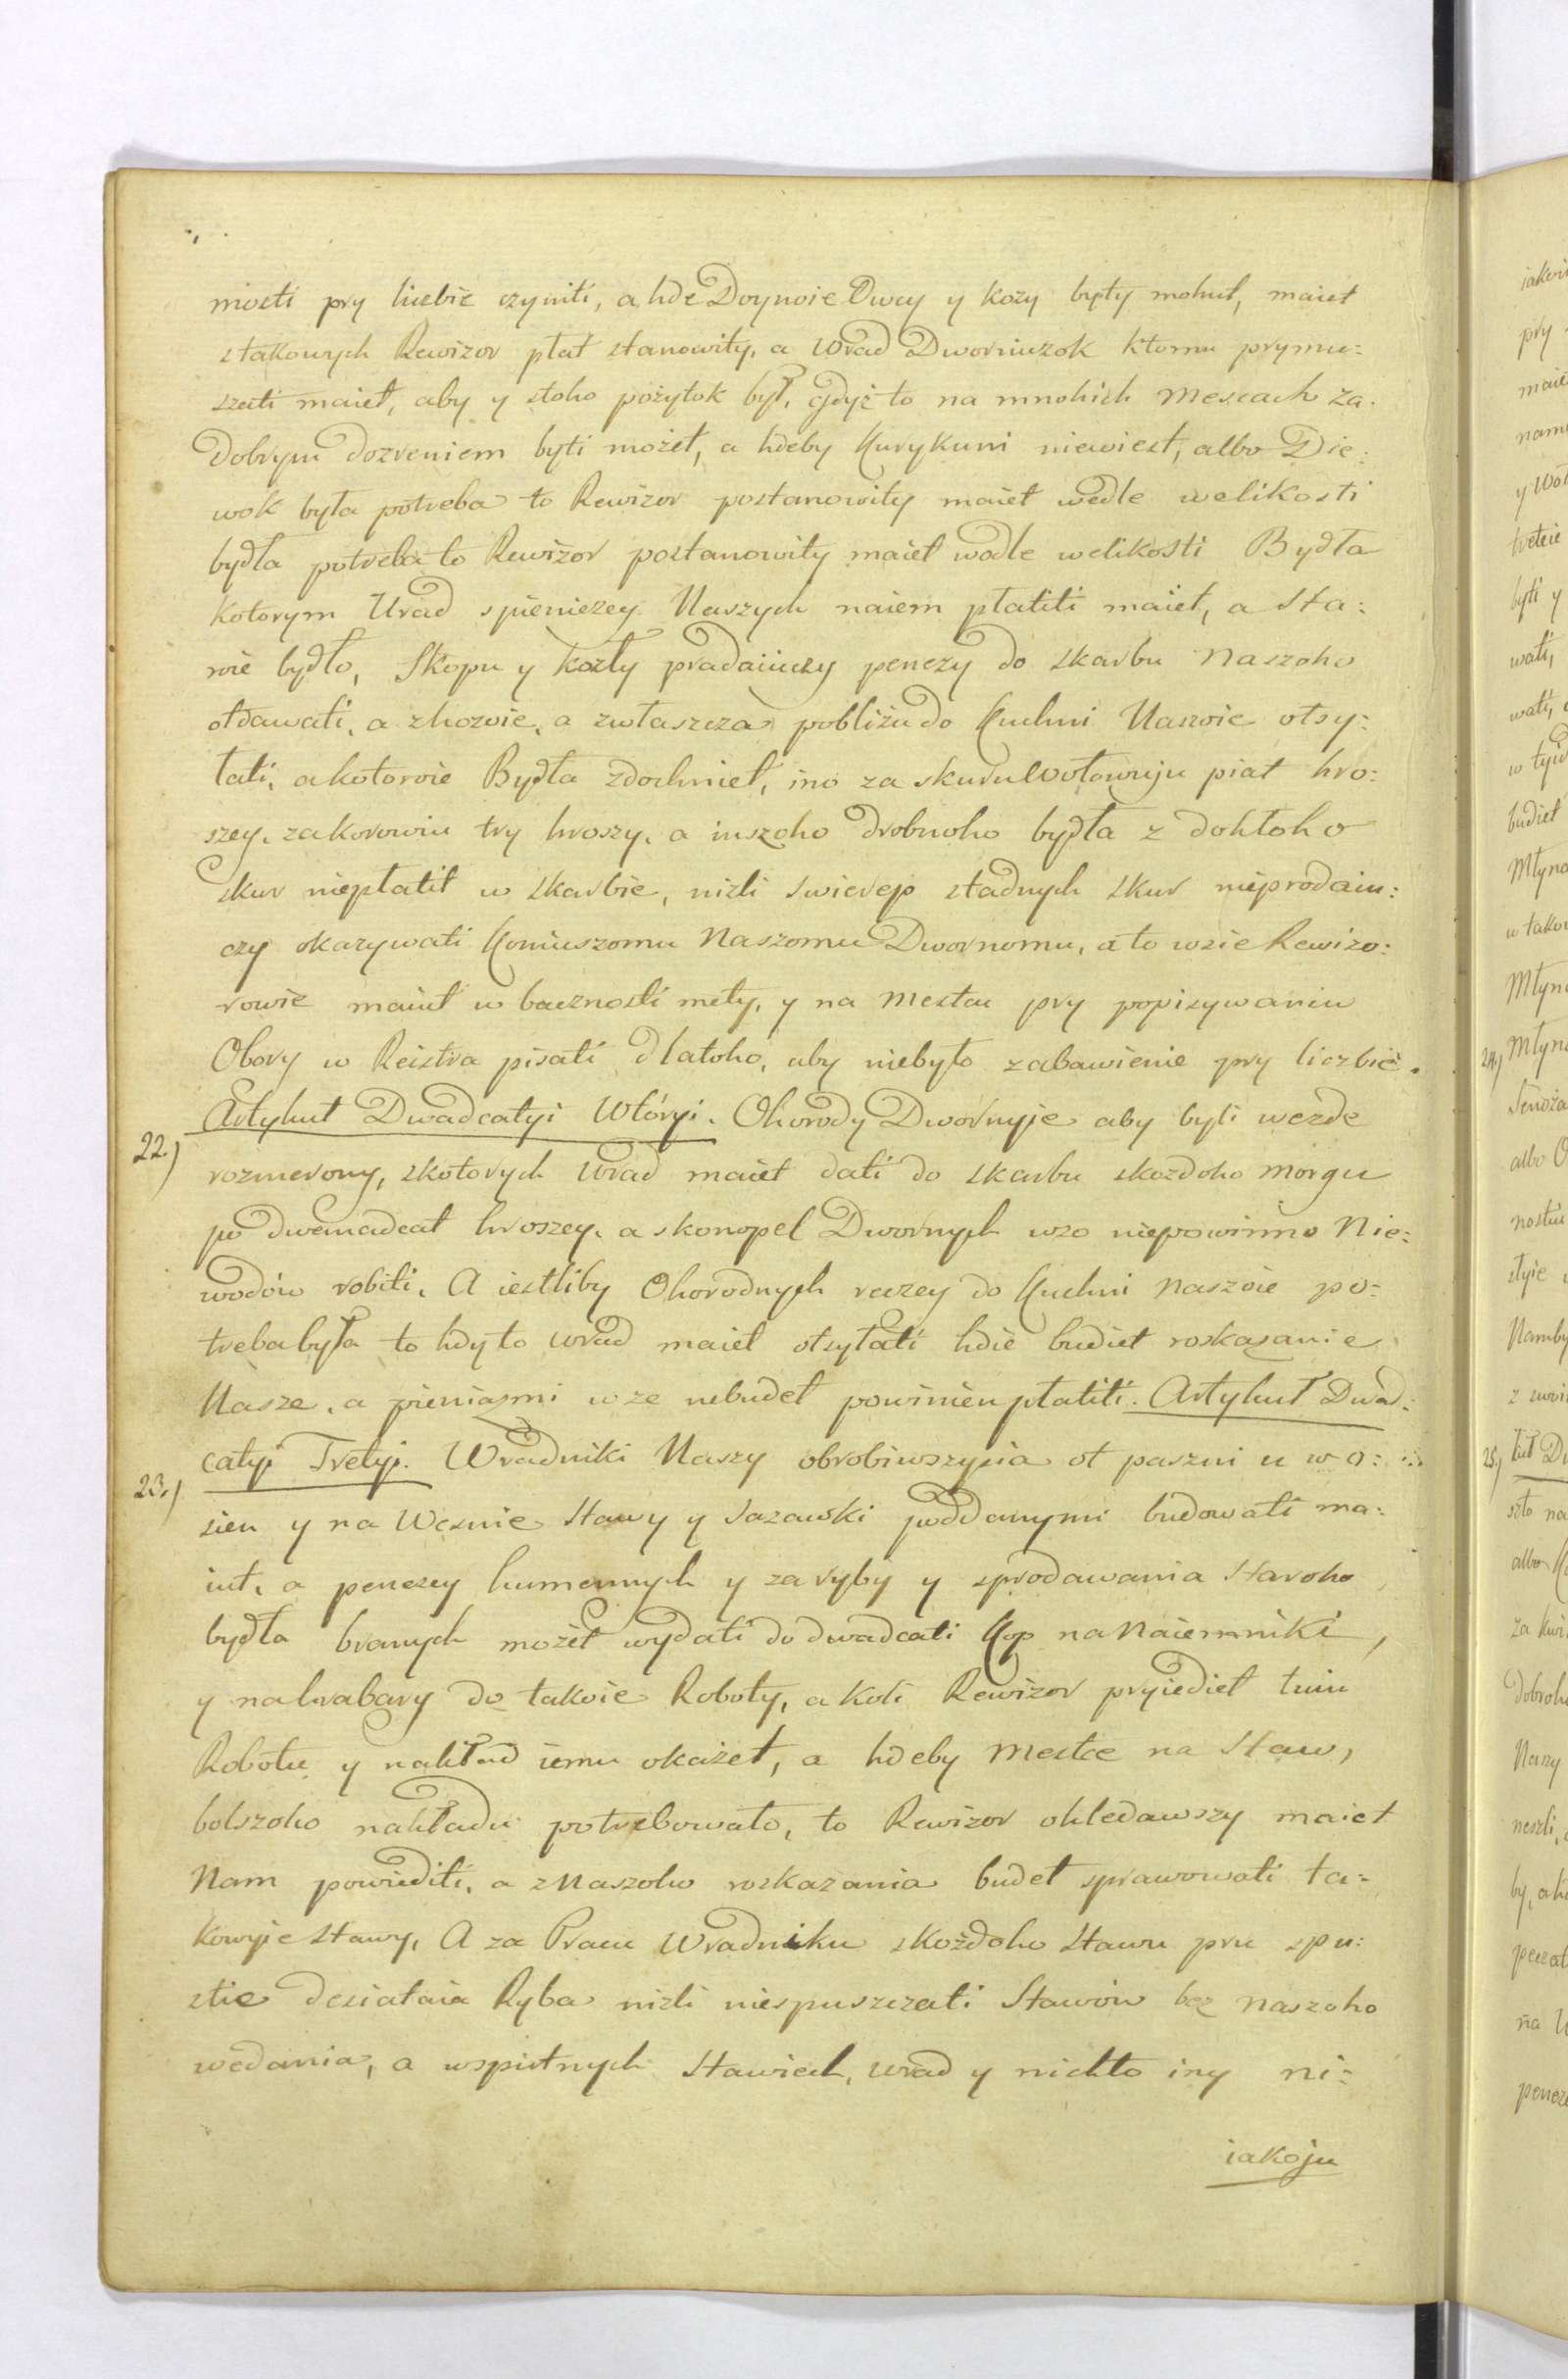 niosti pry liczbie czyniti, a hde Doynoie Owcy y kozy byty mohut, maiet
stakowych Rewizor płat stanowity, a Wrad Dworniczok ktomu prymu:
szati maiet, aby y stoho pożytok był, gdyż to na mnohich mescach za
Dobrym dozreniem byti możet, a hdeby Kurykuni niewiest, albo Die:
wok była potreba to Rewizor postanowity maiet wedle welikosti
bydła potreba to Rewizor postanowity maiet wedle welikosti Bydła
kotorym Urad spieniezey Naszych naiem płatiti maiet, a sta:
roie bydło, Skopu y kozły pradaiuczy penezy do skarbu Naszoho
otdawati, a zhozoie, a zwłaszcza pobliżu do Kuchni Naszoie otsy:
łati, a kotoroie Bydła zdochniet, ino za skuru Wołowuju piat hro:
szey, za korowiu try hroszy, a inszoho drobnoho bydła z dohłoho
skur niepłatit w skarbie, nizli swierep stadnych skur nieprodaiu:
czy okazywati Koniuszomu Naszomu Dwornomu, a to wsie Rewizo:
rowie maiut w bacznosti mety, y na mestcu pry popisywaniu
Obory w Reistra pisati dlatoho, aby niebyło zabawienie pry liczbie.
Artykuł Dwadcatyi Wtóryi. Ohorody Dwornyje aby byli wezde
22.)
rozmerony, skotorych Wrad maiet dati do skarbu skozdoho morgu
po dwenadcat hroszey, a skonopel Dwornych wzo niepowinno Nie:
wodów robiti, A iestliby Ohorodnych reczey do Kuchni naszoie po:
treba była to hdy to wrad maiet otsyłati hdie budiet roskazanie
Nasze, a pieniązmi wze nebudet powinien płatiti. Artykuł Dwad:
catyj Tretyj. Wradniki Naszy obrobiwszysia ot paszni u w o:
23.)
sien y na Wesnie Stawy y Sazawki poddanymi budowati ma:
iut, a penezey humennych y za ryby y sprodawania Staroho
bydła branych możet wydati do dwadcati Kop na Naiemniki,
y na hrabary do takoie Roboty, a koli Rewizor pryiediet tuiu
Robotu y nakład iemu okażet, a hdeby mestce na Staw,
bolszoho nakładu potrebowało, to Rewizor ohledawszy maiet
Nam powiediti, a z Naszoho roskazania budet sprawowati ta:
kowyje stawy, A za Pracu Wradniku skożdoho Stawu pru spu:
stie desiataia Ryba nizli niespuszczati Stawów bez naszoho
wedania, a wspistnych Stawiech, wrad y nichto iny ni:
iakoju